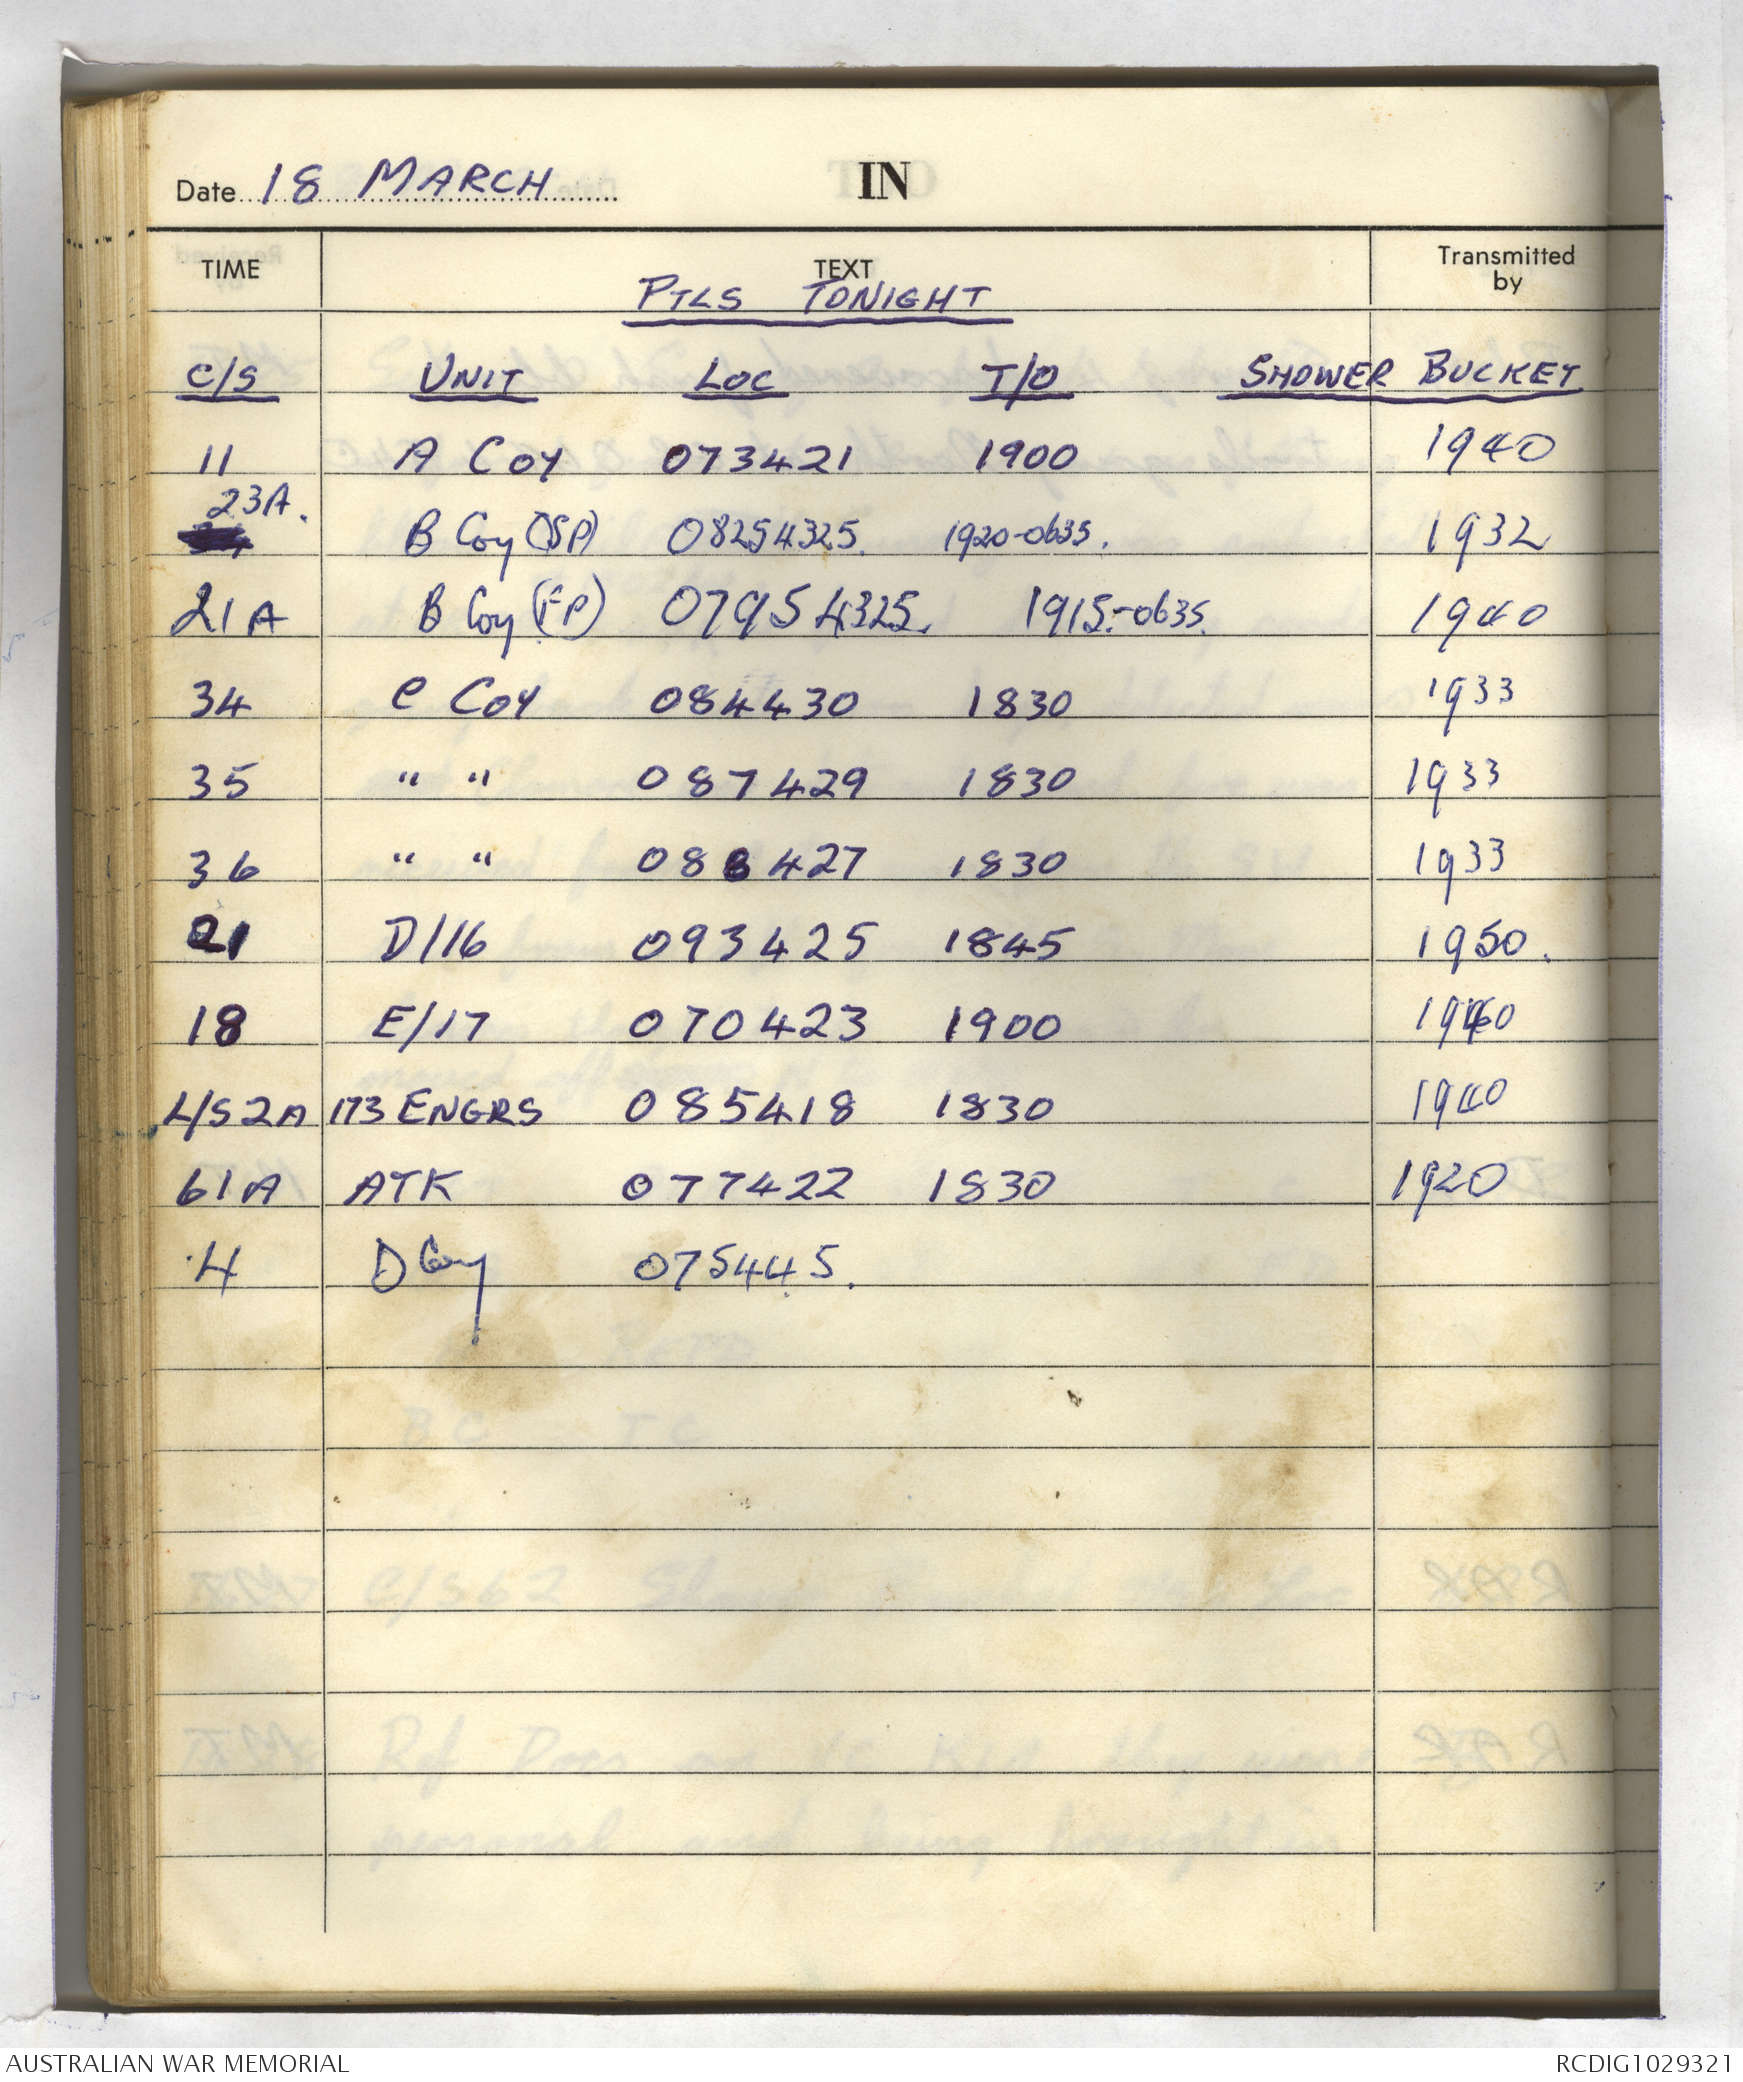 Date 18 MARCH IN
TIME TEXT Transmitted by
PTLS TONIGHT
C/S UNIT LOC T/O SHOWER BUCKET
11 A COY 073421 1900 1940
23A. B Coy (SP) 08254325. 1920-0635. 1932
21A B Coy (FP) 07954325. 1915-0635. 1940
34 C COY 084430 1830 1933
35 " " 087429 1830 1933
36 " " 088427 1830 1933
21 D/16 093425 1845 1950.
18 E/17 070423 1900
L/S 2A 173 ENGRS 085418 1830 1940
61A ATK 077422 1830 1920
4 D Coy 075445.
AUSTRALIAN WAR MEMORIAL RCDIG1029321